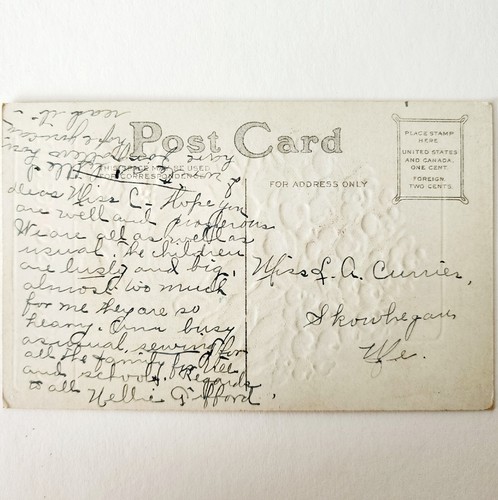 Post Card
THIS SPACE MAY BE USED
FOR CORRESPONDENCE
FOR ADDRESS ONLY
PLACE STAMP
HERE.
UNITED STATES
AND CANADA,
ONE CENT.
FOREIGN,
TWO CENTS.
read it -
hope you can
have
Me.
dear Miss C - Hope you
are well and prosperous
We are all as well as
usual. The children
are lusty and big,
almost too much
for me they are so
heavy. Am busy
as usual, sewing for
all the family
and school. Regards
to all Nellie Tifford.
Miss L. A. Currier,
Skowhegan
Me.